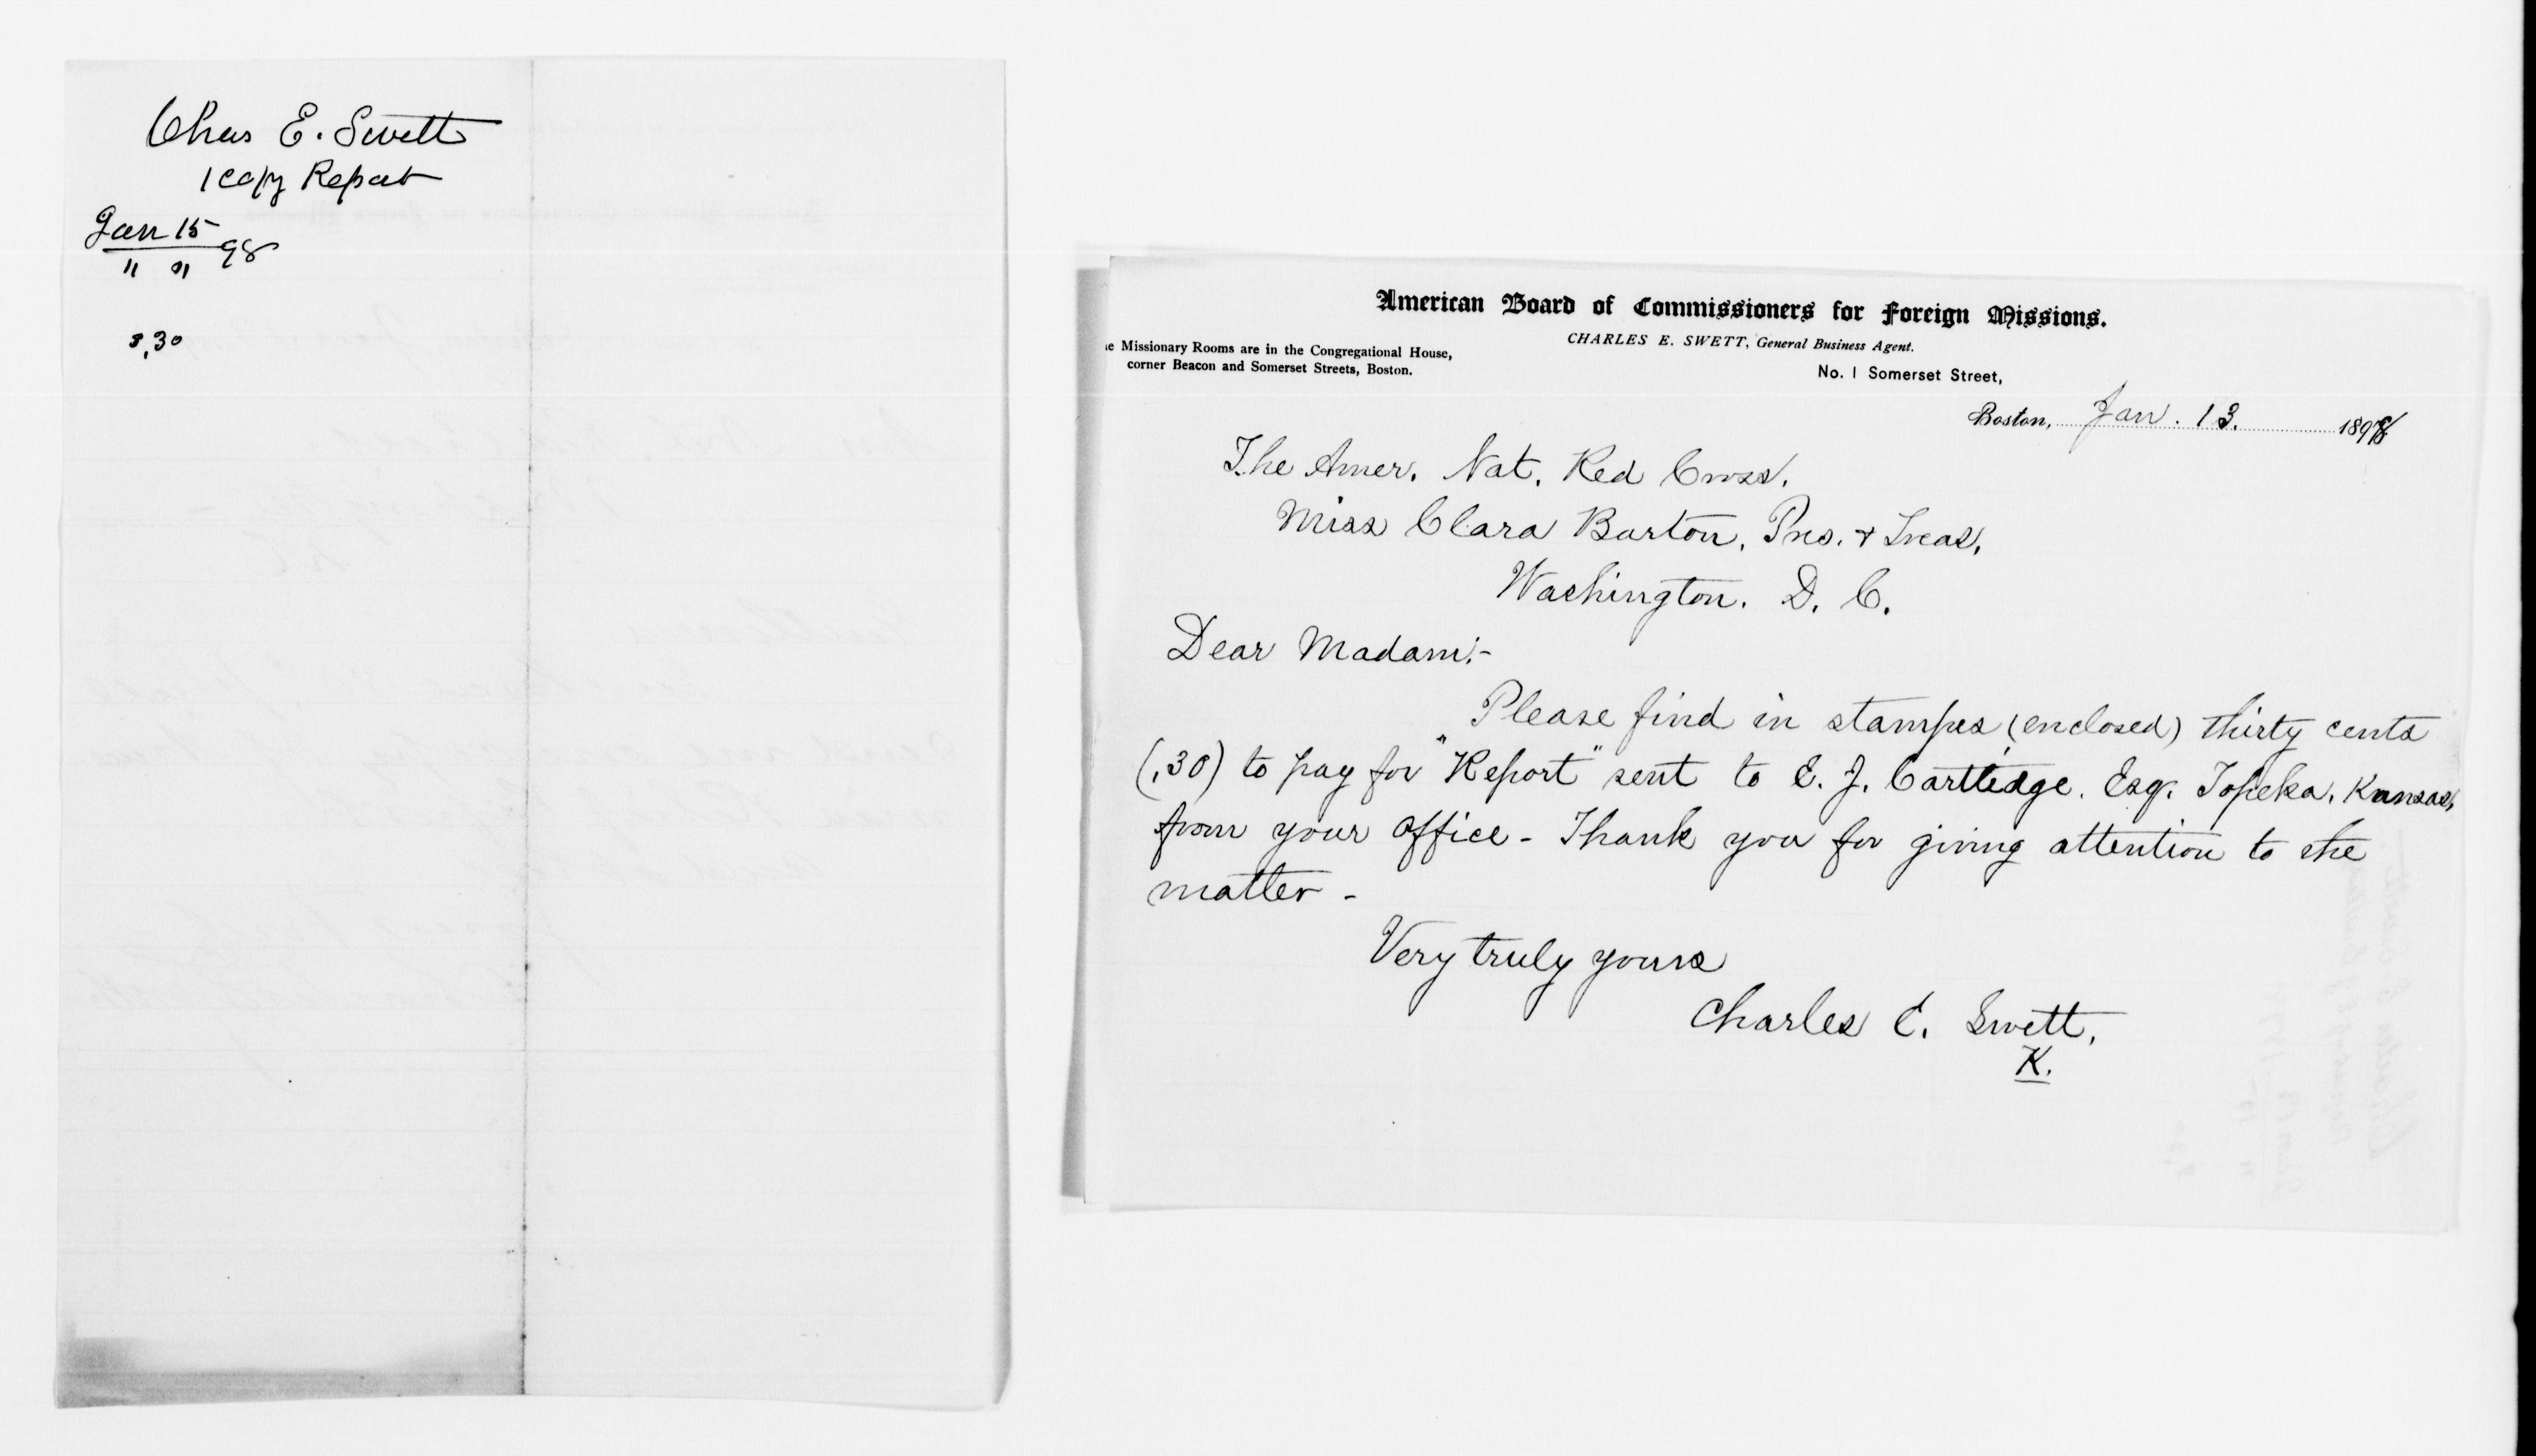 Chas E. Swett
1 copy Report
Jan 15
" " 98
$.30
American Board of Commissioners for Foreign Missions.
CHARLES E. SWETT, General Business Agent.
e Missionary Rooms are in the Congregational House,
corner Beacon and Somerset Streets, Boston.
No. 1 Somerset Street,
Boston, Jan. 13. 1898
The Amer. Nat. Red Cross.
Miss Clara Barton, Pres. & Treas.
Washington. D. C.
Dear Madam:-
Please find in stamps (enclosed) thirty cents
(.30) to pay for "Report" sent to E. J. Carttedge. Esq. Topeka. Kansas,
from your office - Thank you for giving attention to the
matter -
Very truly yours
Charles E. Swett.
K.